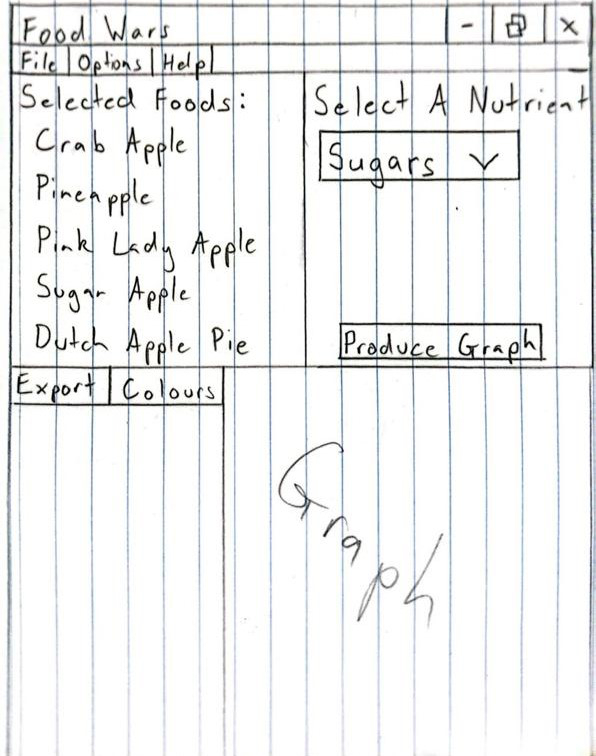 Food Wars
File Options Help
Selected Foods:
Crab Apple
Pineapple
Pink Lady Apple
Sugar Apple
Dutch Apple Pie
Select A Nutrient
Sugars
Produce Graph
Export Colours
Graph